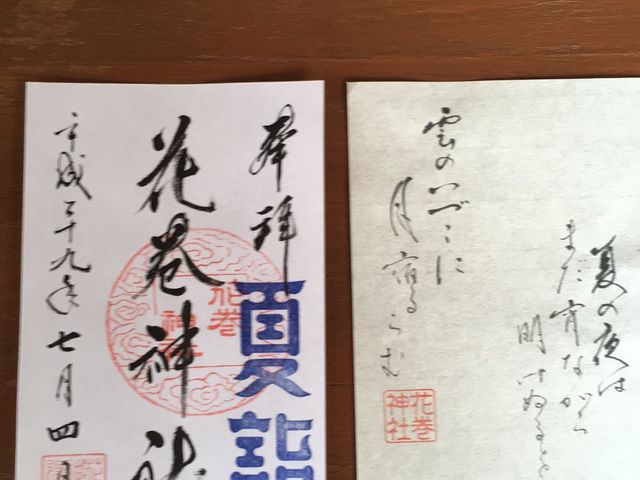 奉拝
夏詣
花巻神社
花巻
神社
平成二十九年七月四日
夏の夜は
まだ宵ながら
明けぬるを
雲のいづこに
月宿るらむ
花巻
神社